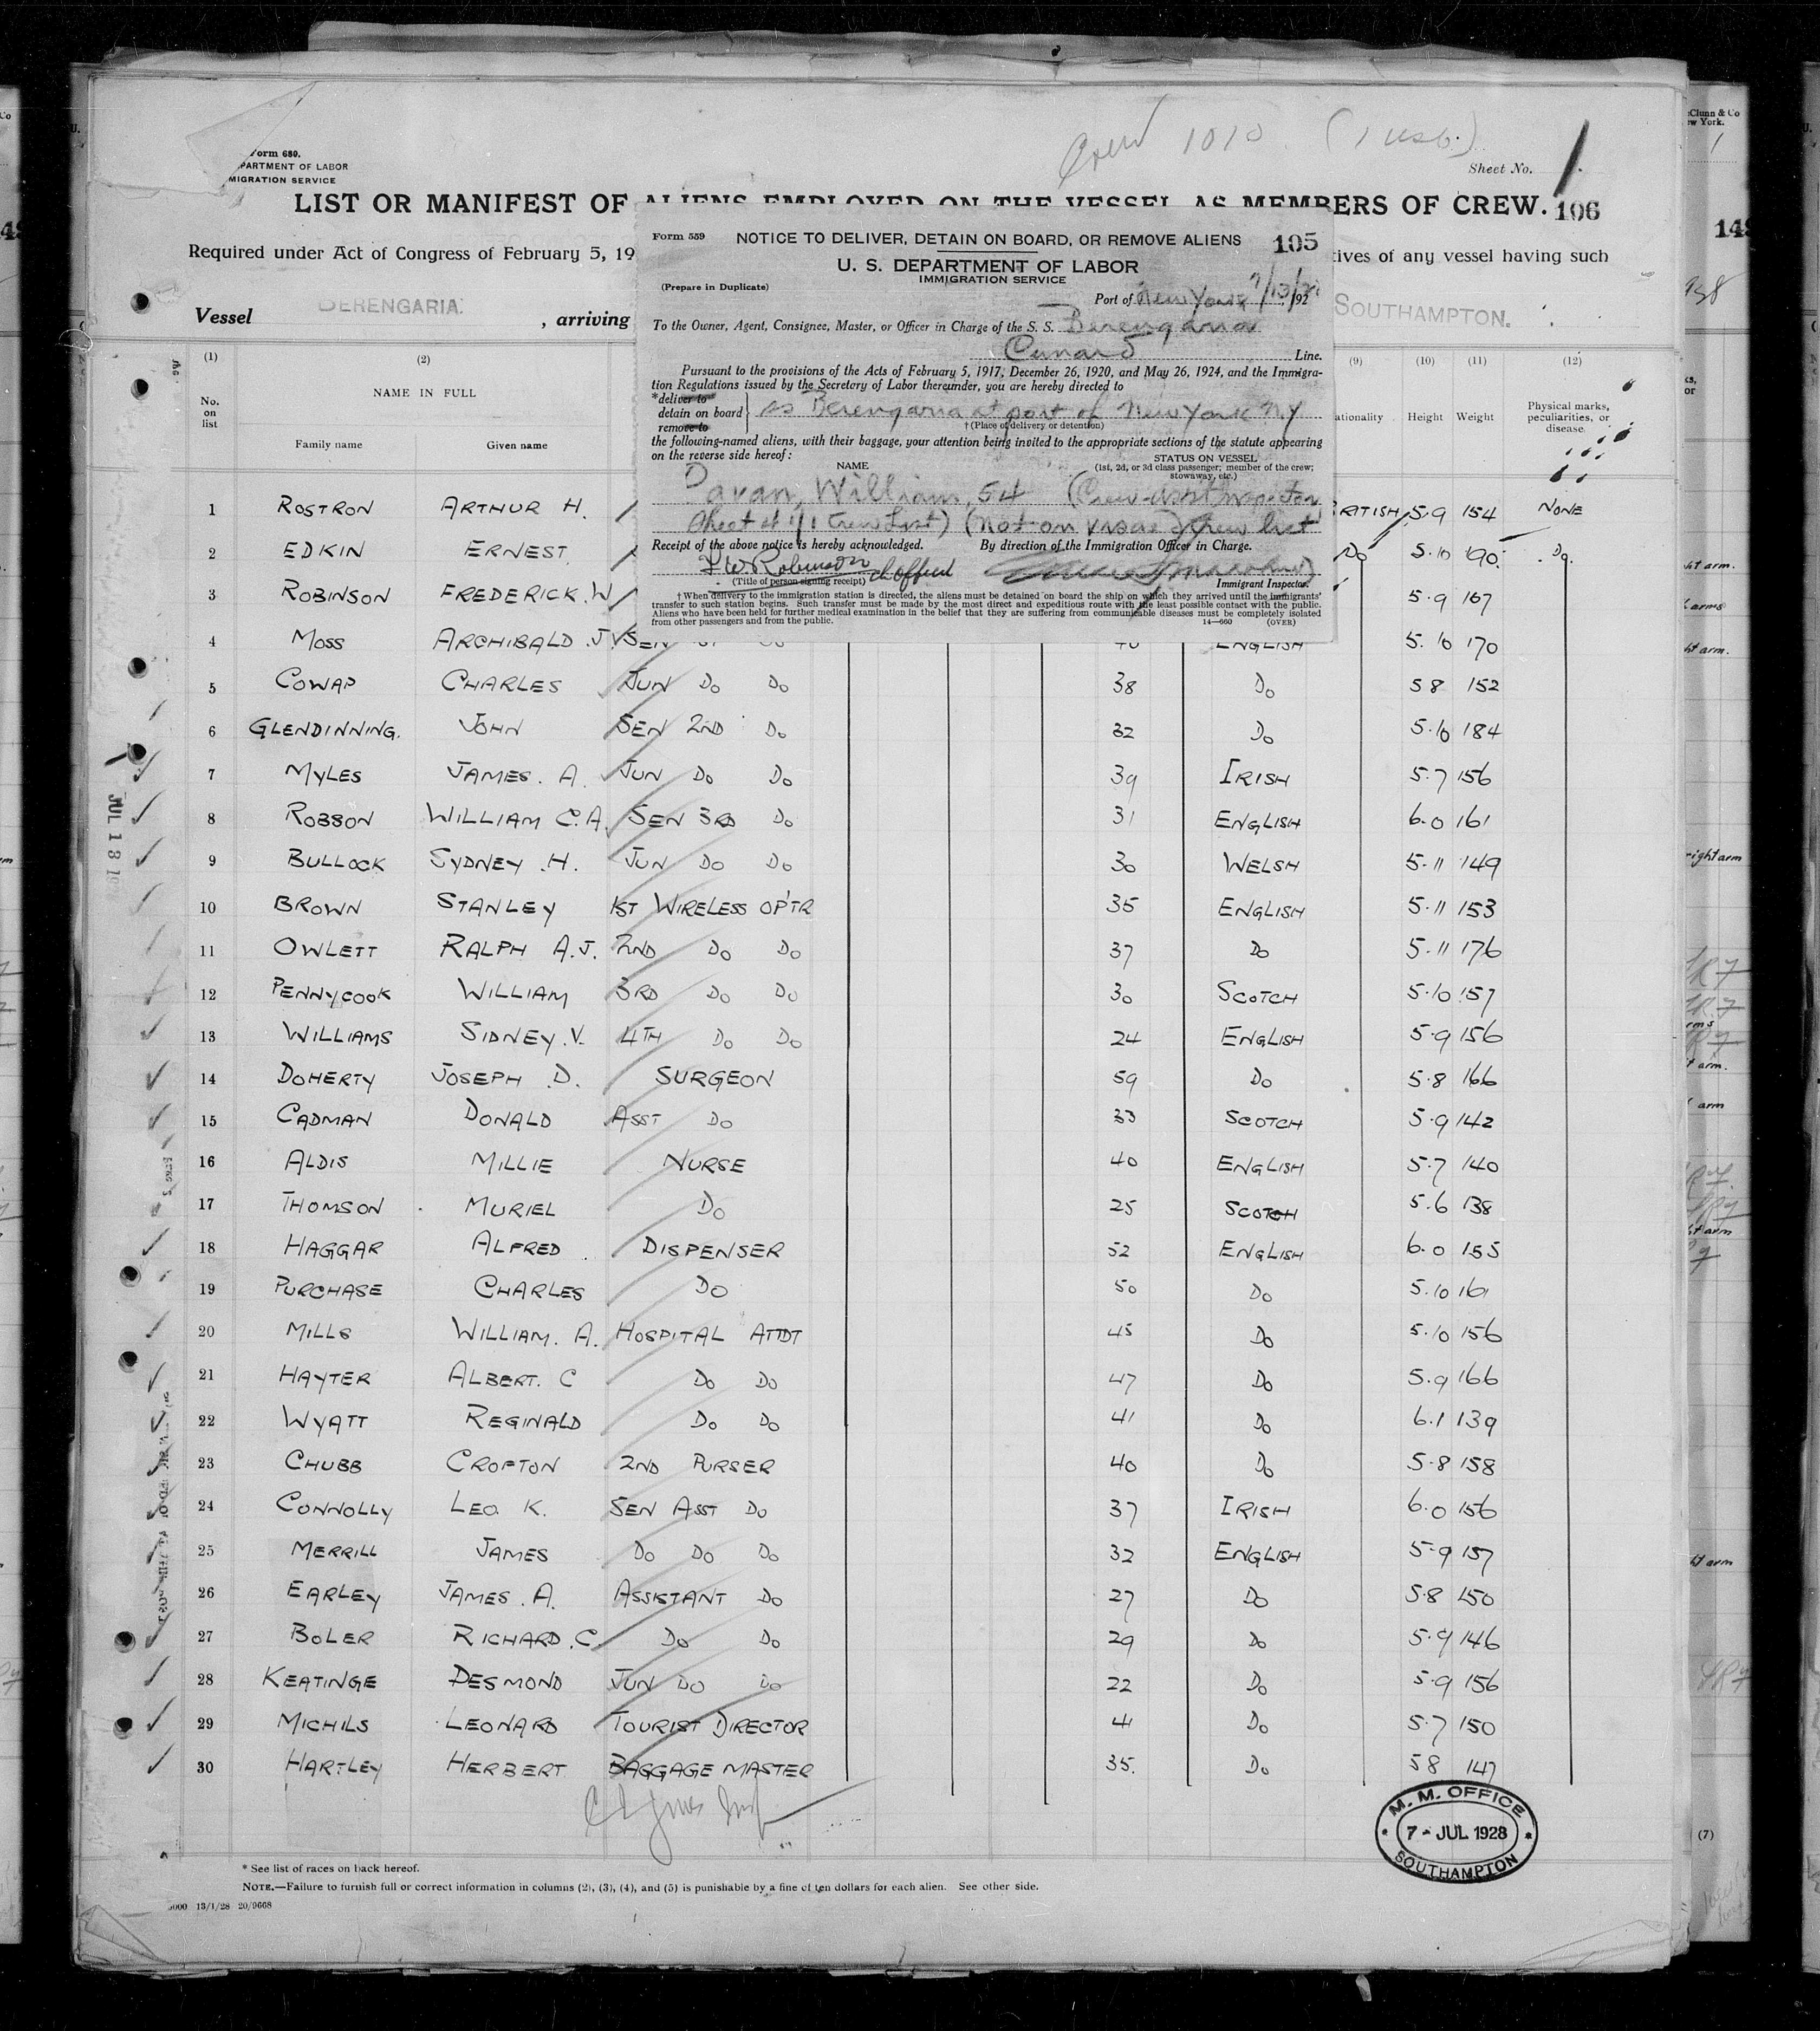 Crew 1010 (1 USC.)
Form 680.
PARTMENT OF LABOR
MIGRATION SERVICE
Sheet No. 1
LIST OR MANIFEST OF ALIENS EMPLOYED ON THE VESSEL AS MEMBERS OF CREW. 106
Required under Act of Congress of February 5, 19
tives of any vessel having such
Vessel BERENGARIA. , arriving
SOUTHAMPTON.
Form 559
NOTICE TO DELIVER, DETAIN ON BOARD, OR REMOVE ALIENS 105
U. S. DEPARTMENT OF LABOR
IMMIGRATION SERVICE
(Prepare in Duplicate)
Port of New York 7/13/28 , 192
To the Owner, Agent, Consignee, Master, or Officer in Charge of the S. S. Berengaria
Cunard Line.
Pursuant to the provisions of the Acts of February 5, 1917, December 26, 1920, and May 26, 1924, and the Immigra-
tion Regulations issued by the Secretary of Labor thereunder, you are hereby directed to
*deliver to
detain on board ss Berengaria at port of New York NY
remove to
†(Place of delivery or detention)
the following-named aliens, with their baggage, your attention being invited to the appropriate sections of the statute appearing
on the reverse side hereof:
NAME
STATUS ON VESSEL
(1st, 2d, or 3d class passenger; member of the crew;
stowaway, etc.)
William, 54 (Crew
Sheet # Crew List) (not on visaed crew list
Receipt of the above notice is hereby acknowledged. By direction of the Immigration Officer in Charge.
F W Robinson Ch Officer
(Title of person signing receipt) Immigrant Inspector.
†When delivery to the immigration station is directed, the aliens must be detained on board the ship on which they arrived until the immigrants'
transfer to such station begins. Such transfer must be made by the most direct and expeditious route with the least possible contact with the public.
Aliens who have been held for further medical examination in the belief that they are suffering from communicable diseases must be completely isolated
from other passengers and from the public. 14—660 (OVER)
(1) (2) (9) (10) (11) (12)
No. on list
NAME IN FULL
Family name Given name
ationality Height Weight
Physical marks, peculiarities, or disease.
1 ROSTRON ARTHUR H. BRITISH 5.9 154 NONE
2 EDKIN ERNEST Do 5.10 190 Do.
3 ROBINSON FREDERICK.W 5.9 167
4 MOSS ARCHIBALD .J.V SEN ENGLISH 5.10 170
5 COWAP CHARLES JUN Do Do 38 Do 5 8 152
6 GLENDINNING. JOHN SEN 2ND Do 32 Do 5.10 184
7 MYLES JAMES. A. JUN Do Do 39 IRISH 5.7 156
8 ROBSON WILLIAM C.A. SEN 3RD Do 31 ENGLISH 6.0 161
9 BULLOCK SYDNEY .H. JUN Do Do 30 WELSH 5.11 149
10 BROWN STANLEY 1ST WIRELESS OP'TR 35 ENGLISH 5.11 153
11 OWLETT RALPH A.J. 2ND Do Do 37 Do 5.11 176
12 PENNYCOOK WILLIAM 3RD Do Do 30 SCOTCH 5.10 157
13 WILLIAMS SIDNEY.V. 4TH Do Do 24 ENGLISH 5.9 156
14 DOHERTY JOSEPH .D. SURGEON 59 Do 5.8 166
15 CADMAN DONALD ASST Do 33 SCOTCH 5.9 142
16 ALDIS MILLIE NURSE 40 ENGLISH 5.7 140
17 THOMSON MURIEL Do 25 SCOTCH 5.6 138
18 HAGGAR ALFRED. DISPENSER 52 ENGLISH 6.0 155
19 PURCHASE CHARLES Do 50 Do 5.10 161
20 MILLS WILLIAM. A. HOSPITAL ATTDT 45 Do 5.10 156
21 HAYTER ALBERT. C Do Do 47 Do 5.9 166
22 WYATT REGINALD Do Do 41 Do 6.1 139
23 CHUBB CROFTON 2ND PURSER 40 Do 5.8 158
24 CONNOLLY LEO. K. SEN ASST Do 37 IRISH 6.0 156
25 MERRILL JAMES Do Do Do 32 ENGLISH 5.9 157
26 EARLEY JAMES .A. ASSISTANT Do 27 Do 5.8 150
27 BOLER RICHARD .C. Do Do 29 Do 5.9 146
28 KEATINGE DESMOND JUN Do Do 22 Do 5.9 156
29 MICHILS LEONARD TOURIST DIRECTOR 41 Do 5.7 150
30 HARTLEY HERBERT BAGGAGE MASTER 35. Do 5 8 147
JUL 18
M. M. OFFICE
7 - JUL 1928
SOUTHAMPTON
* See list of races on back hereof.
NOTE.—Failure to furnish full or correct information in columns (2), (3), (4), and (5) is punishable by a fine of ten dollars for each alien. See other side.
13/1/28 20/9668
Clunn & Co
ew York.
right arm
(7)